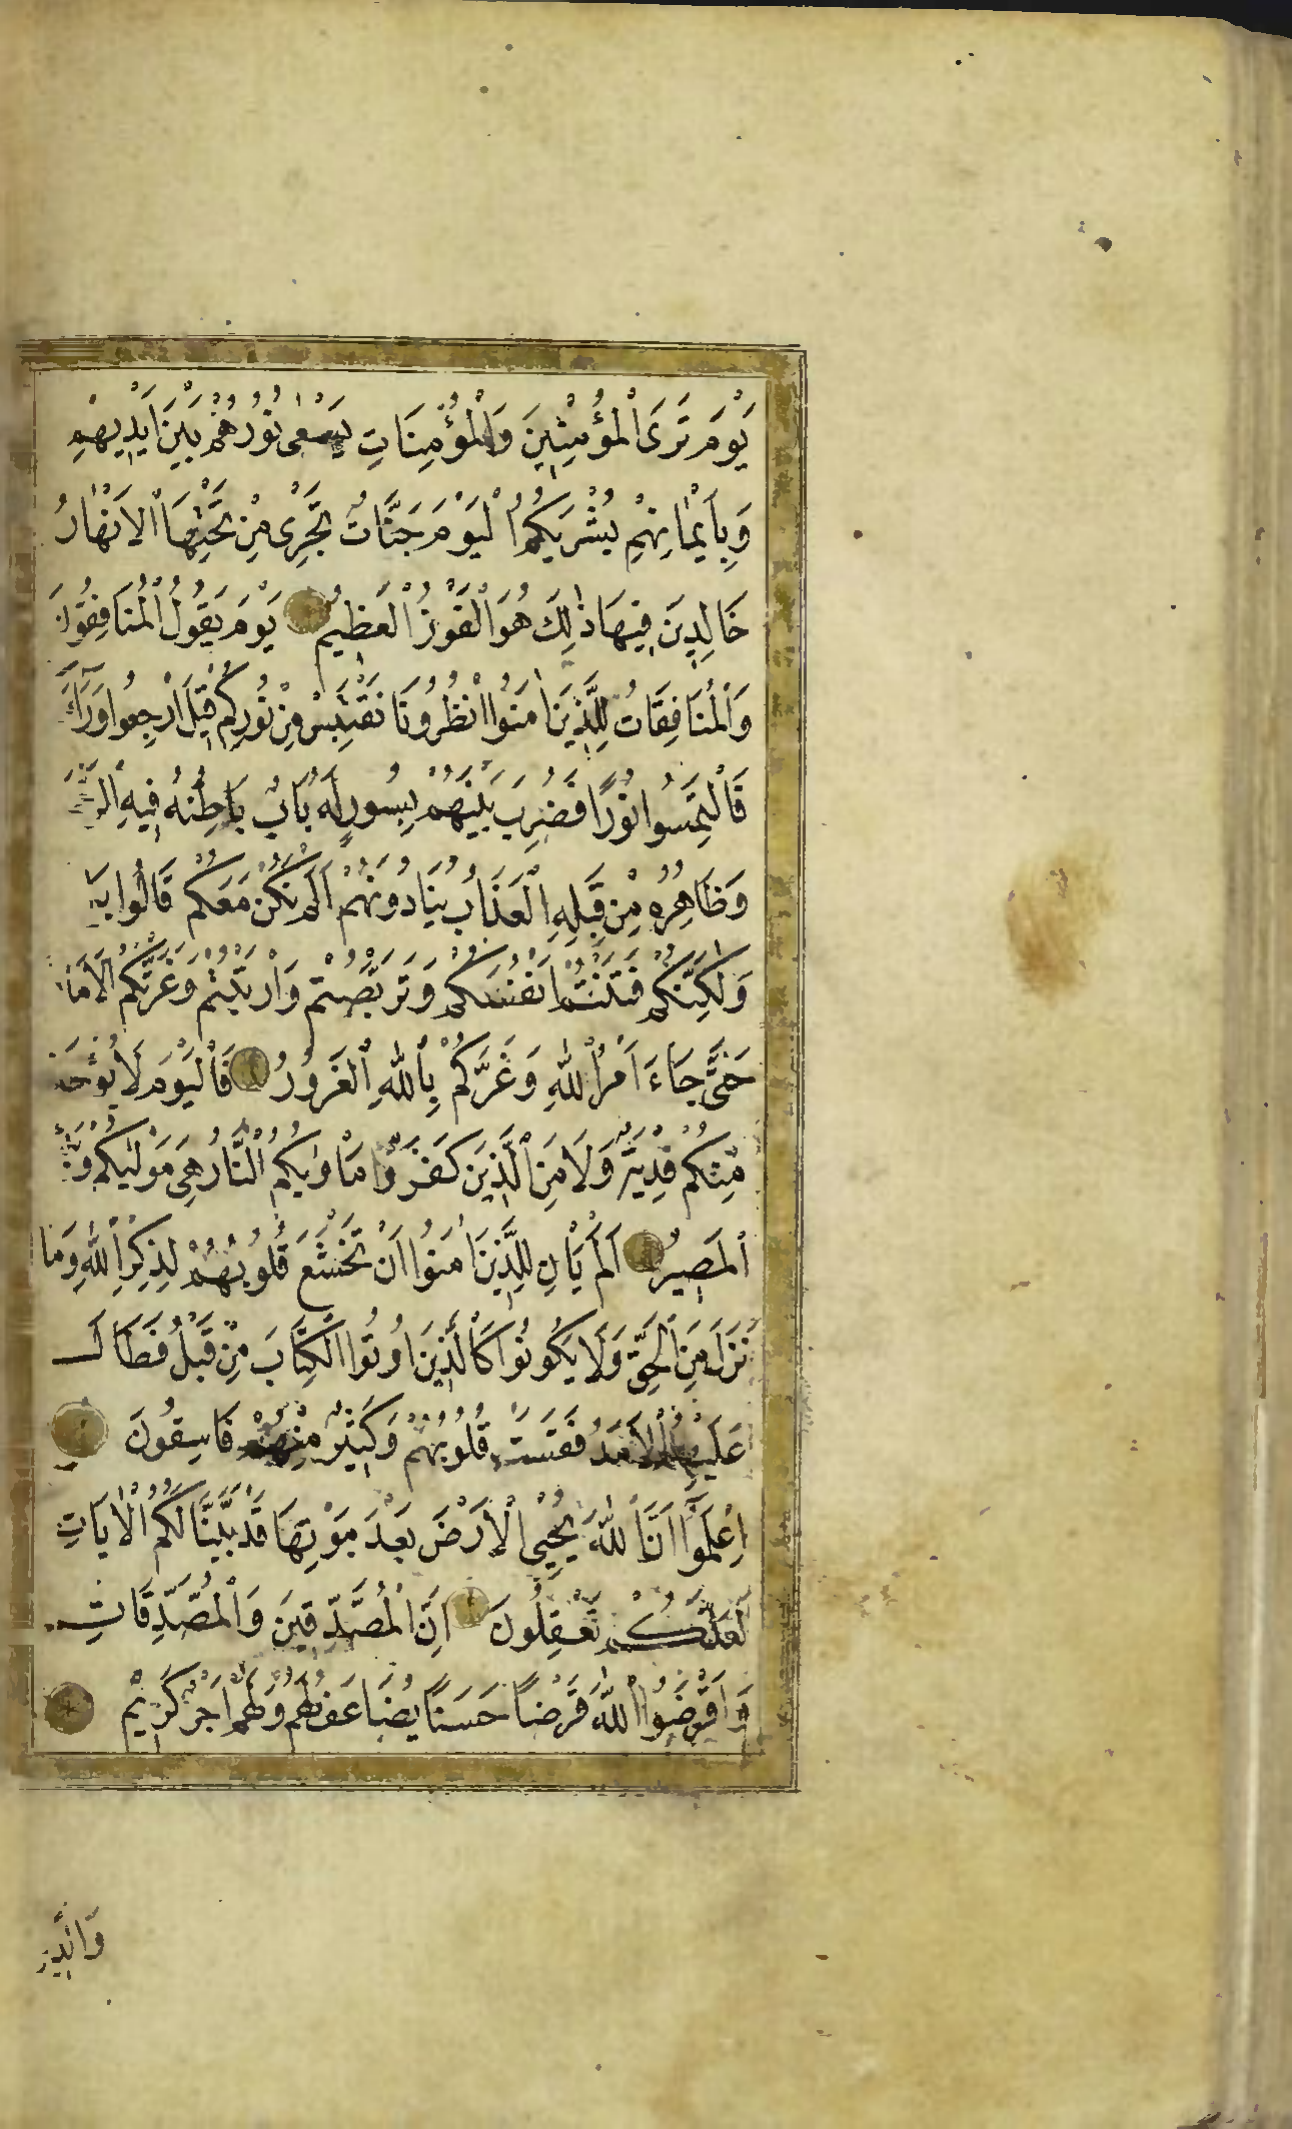 يَوْمَ تَرَى الْمُؤْمِنِينَ وَالْمُؤْمِنَاتِ يَسْعٰى نُورُهُمْ بَيْنَ اَيْدِيهِمْ
وَبِاَيْمَانِهِمْ بُشْرٰيكُمُ الْيَوْمَ جَنَّاتٌ تَجْرِى مِنْ تَحْتِهَا الْاَنْهَارُ
خَالِدِينَ فِيهَا ذٰلِكَ هُوَ الْفَوْزُ الْعَظِيمُ يَوْمَ يَقُولُ الْمُنَافِقُونَ
وَالْمُنَافِقَاتُ لِلَّذِينَ اٰمَنُوا انْظُرُونَا نَقْتَبِسْ مِنْ نُورِكُمْ قِيلَ ارْجِعُوا
فَالْتَمِسُوا نُورًا فَضُرِبَ بَيْنَهُمْ بِسُورٍ لَهُ بَابٌ بَاطِنُهُ فِيهِ
وَظَاهِرُهُ مِنْ قِبَلِهِ الْعَذَابُ يُنَادُونَهُمْ اَلَمْ نَكُنْ مَعَكُمْ قَالُوا
وَلٰكِنَّكُمْ فَتَنْتُمْ اَنْفُسَكُمْ وَتَرَبَّصْتُمْ وَارْتَبْتُمْ وَغَرَّتْكُمُ
حَتّٰى جَاءَ اَمْرُ اللّٰهِ وَغَرَّكُمْ بِاللّٰهِ الْغَرُورُ فَالْيَوْمَ لَا يُؤْخَذُ
مِنْكُمْ فِدْيَةٌ وَلَا مِنَ الَّذِينَ كَفَرُوا مَاْوٰيكُمُ النَّارُ هِىَ مَوْلٰيكُمْ
الْمَصِيرُ اَلَمْ يَاْنِ لِلَّذِينَ اٰمَنُوا اَنْ تَخْشَعَ قُلُوبُهُمْ لِذِكْرِ اللّٰهِ وَمَا
نَزَلَ مِنَ الْحَقِّ وَلَا يَكُونُوا كَالَّذِينَ اُوتُوا الْكِتَابَ مِنْ قَبْلُ فَطَالَ
عَلَيْهِمُ الْاَمَدُ فَقَسَتْ قُلُوبُهُمْ وَكَثِيرٌ مِنْهُمْ فَاسِقُونَ
اِعْلَمُوا اَنَّ اللّٰهَ يُحْيِي الْاَرْضَ بَعْدَ مَوْتِهَا قَدْ بَيَّنَّا لَكُمُ الْاٰيَاتِ
لَعَلَّكُمْ تَعْقِلُونَ اِنَّ الْمُصَّدِّقِينَ وَالْمُصَّدِّقَاتِ
وَاَقْرَضُوا اللّٰهَ قَرْضًا حَسَنًا يُضَاعَفُ لَهُمْ وَلَهُمْ اَجْرٌ كَرِيمٌ